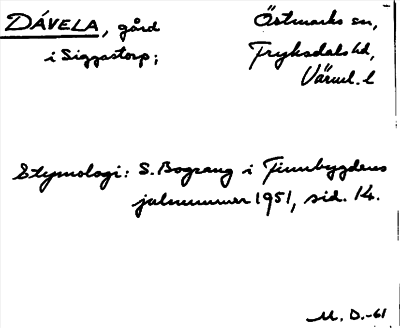 DÁVELA, gård
i Siggastorp;
Östmarks sn,
Fryksdals hd,
Värml. l
Etymologi: S. Bograng i Finnbygdens
julnummer 1951, sid. 14.
M. D.-61